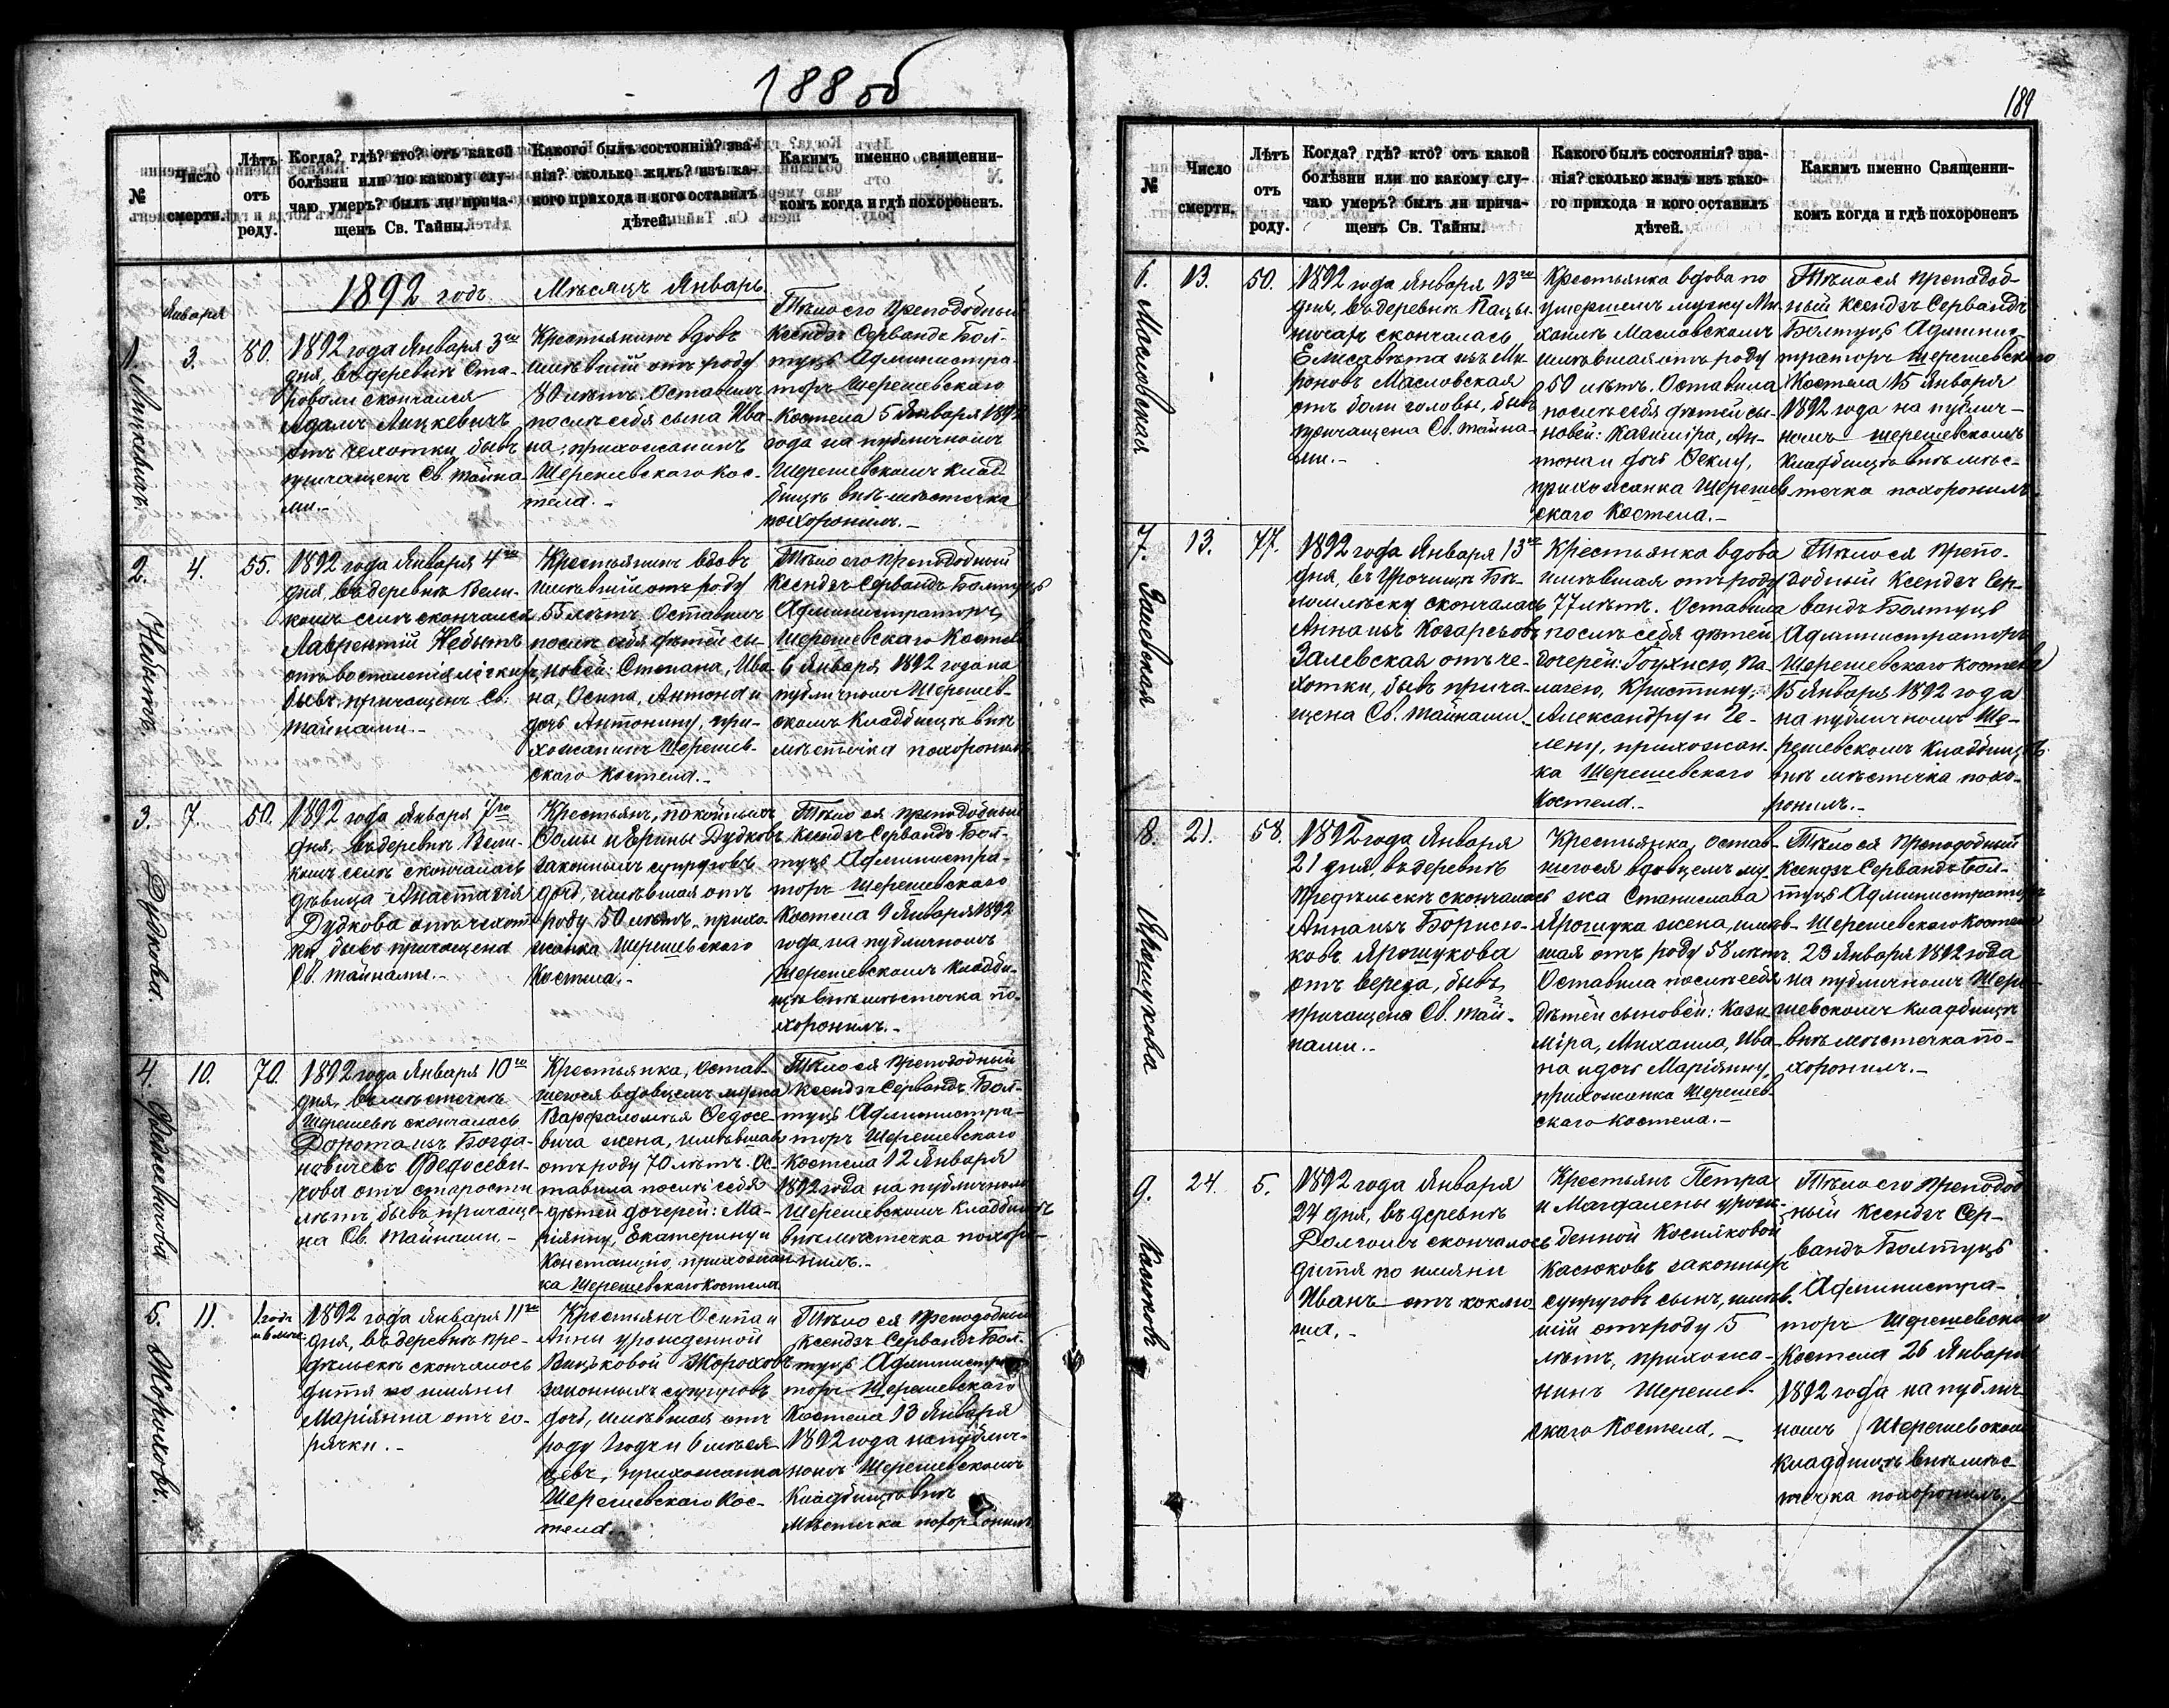 188 об
№
Число
смерти.
Лѣтъ
отъ
роду.
Когда? гдѣ? кто? отъ какой
болѣзни или по какому слу-
чаю умеръ? былъ ли прича-
щенъ Св. Тайны.
Какого былъ состоянія? зва-
нія? сколько жилъ? изъ ка-
кого прихода и кого оставилъ
дѣтей.
Какимъ именно священни-
комъ когда и гдѣ похороненъ.
1892 годъ
Мѣсяцъ Январь
Января
1.
3.
80.
1892 года Января 3го
дня, въ деревнѣ Ста-
роволи скончался
Адамъ Лицкевичъ
отъ чахотки, бывъ
причащенъ Св. Тайна-
ми.-
Крестьянинъ вдовъ
имѣвшій отъ роду
80 лѣтъ. Оставилъ
послѣ себя сына Ива-
на; прихожанинъ
Шерешевскаго Кос-
тела.-
Тѣло его Преподобный
Ксендзъ Сервандъ Бол-
туць Администра-
торъ Шерешевскаго
Костела 5 Января 1892
года на публичномъ
Шерешевскомъ клад-
бищѣ внѣ мѣстечка
похоронилъ.-
2.
Небытъ
4.
55.
1892 года Января 4го
дня, въ деревнѣ Вели-
комъ селѣ скончался
Лаврентій Небытъ
отъ воспаленія лёгкихъ,
бывъ причащенъ Св.
Тайнами.-
Крестьянинъ вдовъ
имѣвшій отъ роду
55 лѣтъ. Оставилъ
послѣ себя дѣтей сы-
новей: Степана, Ива-
на, Осипа, Антона и
дочь Антонину, при-
хожанинъ Шерешев-
скаго Костела.-
Тѣло его Преподобный
Ксендзъ Сервандъ Болтуць
Администраторъ
Шерешевскаго Костела
6 Января 1892 года на
публичномъ Шерешев-
скомъ Кладбищѣ внѣ
мѣстечка похоронилъ
3.
Дудкова
7.
50.
1892 года Января 7го
дня, въ деревнѣ Вели-
комъ селѣ скончалась
дѣвица Анастазія
Дудкова отъ чахот-
ки, бывъ причащена
Св. Тайнами.-
Крестьянъ, покойныхъ
Ѳомы и Ерины Дудковъ
законныхъ супруговъ
дочь, имѣвшая отъ
роду 50 лѣтъ, прихо-
жанка Шерешевскаго
Костела.-
Тѣло ея Преподобный
Ксендзъ Сервандъ Бол-
туць Администра-
торъ Шерешевскаго
Костела 9 Января 1892
года, на публичномъ
Шерешевскомъ Кладби-
щѣ внѣ мѣстечка по-
хоронилъ.-
4.
10.
70.
1892 года Января 10го
дня, въ мѣстечкѣ
Шерешевѣ скончалась
Дорота изъ Богда-
новичевъ Федосеви-
чова отъ старости
лѣтъ, бывъ причаще-
на Св. Тайнами.-
Крестьянка, остав-
шегося вдовцемъ мужа
Варфаломѣя Федосе-
вича жена, имѣвшая
отъ роду 70 лѣтъ. Ос-
тавила послѣ себя
дѣтей дочерей: Ма-
ріянну, Екатерину и
Констанцію, прихожан-
ка Шерешевскаго Костела
Тѣло ея Преподобный
Ксендзъ Сервандъ Бол-
туць Администра-
торъ Шерешевскаго
Костела 12 Января
1892 года на публичномъ
Шерешевскомъ Кладбищѣ
внѣ мѣстечка похоро-
нилъ.-
5.
Жороховъ.
11.
1 годъ
и 6 мѣсяц.
1892 года Января 11го
дня, въ деревнѣ Пре-
дѣльскъ скончалось
дитя по имяни
Маріянна отъ го-
рячки.-
Крестьянъ Осипа и
Анны урожденной
Вицьковой Жороховъ
законныхъ супруговъ
дочь, имѣвшая отъ
роду 1 годъ и 6 мѣся-
цевъ, прихожанка
Шерешевскаго Кос-
тела.
Тѣло ея Преподобный
Ксендзъ Сервандъ Бол-
туць Администра-
торъ Шерешевскаго
Костела 13 Января
1892 года на публич-
номъ Шерешевскомъ
Кладбищѣ внѣ
мѣстечка похоронилъ
189
№
Число
смерти.
Лѣтъ
отъ
роду.
Когда? гдѣ? кто? отъ какой
болѣзни или по какому слу-
чаю умеръ? былъ ли прича-
щенъ Св. Тайны.
Какого былъ состоянія? зва-
нія? сколько жилъ изъ како-
го прихода и кого оставилъ
дѣтей.
Какимъ именно Священни-
комъ когда и гдѣ похороненъ
6.
Масловская
13.
50.
1892 года Января 13го
дня, въ деревнѣ
скончалась
Елисавѣта изъ Ми-
роновъ Масловская
отъ боли головы, бывъ
причащена Св. Тайна-
ми.-
Крестьянка вдова по
умершемъ мужу Ми-
хаилѣ Масловскомъ
имѣвшая отъ роду
50 лѣтъ. Оставила
послѣ себя дѣтей сы-
новей: Казиміра, Ан-
тона и дочь Ѳеклу,
прихожанка Шерешев-
скаго Костела.-
Тѣло ея Преподоб-
ный Ксендзъ Сервандъ
Болтуць Админис-
траторъ Шерешевскаго
Костела 15 Января
1892 года на публич-
номъ Шерешевскомъ
Кладбищѣ внѣ мѣс-
течка похоронилъ.
7.
Залевская
13.
77.
1892 года Января 13го
дня, въ Урочищѣ Бѣ-
скончалась
Анна изъ Козарсовъ
Залевская отъ ча-
хотки, бывъ прича-
щена Св. Тайнами.-
Крестьянка вдова
имѣвшая отъ роду
77 лѣтъ. Оставила
послѣ себя дѣтей
дочерей: Па-
лагею, Кристину,
Александру и Ге-
лену, прихожан-
ка Шерешевскаго
Костела.-
Тѣло ея Препо-
добный Ксендзъ Сер-
вандъ Болтуць
Администраторъ
Шерешевскаго Костела
15 Января 1892 года
на публичномъ Ше-
решевскомъ Кладбищѣ
внѣ мѣстечка похо-
ронилъ.-
8.
Ярошукова
21.
58.
1892 года Января
21 дня, въ деревнѣ
Предѣльскѣ скончалась
Анна изъ Борисю-
ковъ Ярошукова
отъ вереда, бывъ
причащена Св. Тай-
нами.-
Крестьянка, остав-
шегося вдовцемъ му-
жа Станислава
Ярошука жена, имѣв-
шая отъ роду 58 лѣтъ.
Оставила послѣ себя
дѣтей сыновей: Кази-
міра, Михаила, Ива-
на и дочь Маріянну,
прихожанка Шерешев-
скаго Костела.-
Тѣло ея Преподобный
Ксендзъ Сервандъ Бол-
туць Администраторъ
Шерешевскаго Костела
23 Января 1892 года
на публичномъ Шере-
шевскомъ Кладбищѣ
внѣ мѣстечка по-
хоронилъ.-
9.
Касюковъ
24.
5.
1892 года Января
24 дня, въ деревнѣ
Долгомъ скончалось
дитя по имяни
Иванъ отъ коклю-
ша.-
Крестьянъ Петра
и Магдалены урож-
денной Космяковой
Касюковъ законныхъ
супруговъ сынъ, имѣв-
шій отъ роду 5
лѣтъ, прихожа-
нинъ Шерешев-
скаго Костела.-
Тѣло его Преподоб-
ный Ксендзъ Сер-
вандъ Болтуць
Администра-
торъ Шерешевскаго
Костела 26 Января
1892 года на публич-
номъ Шерешевскомъ
кладбищѣ внѣ мѣс-
течка похоронилъ.-